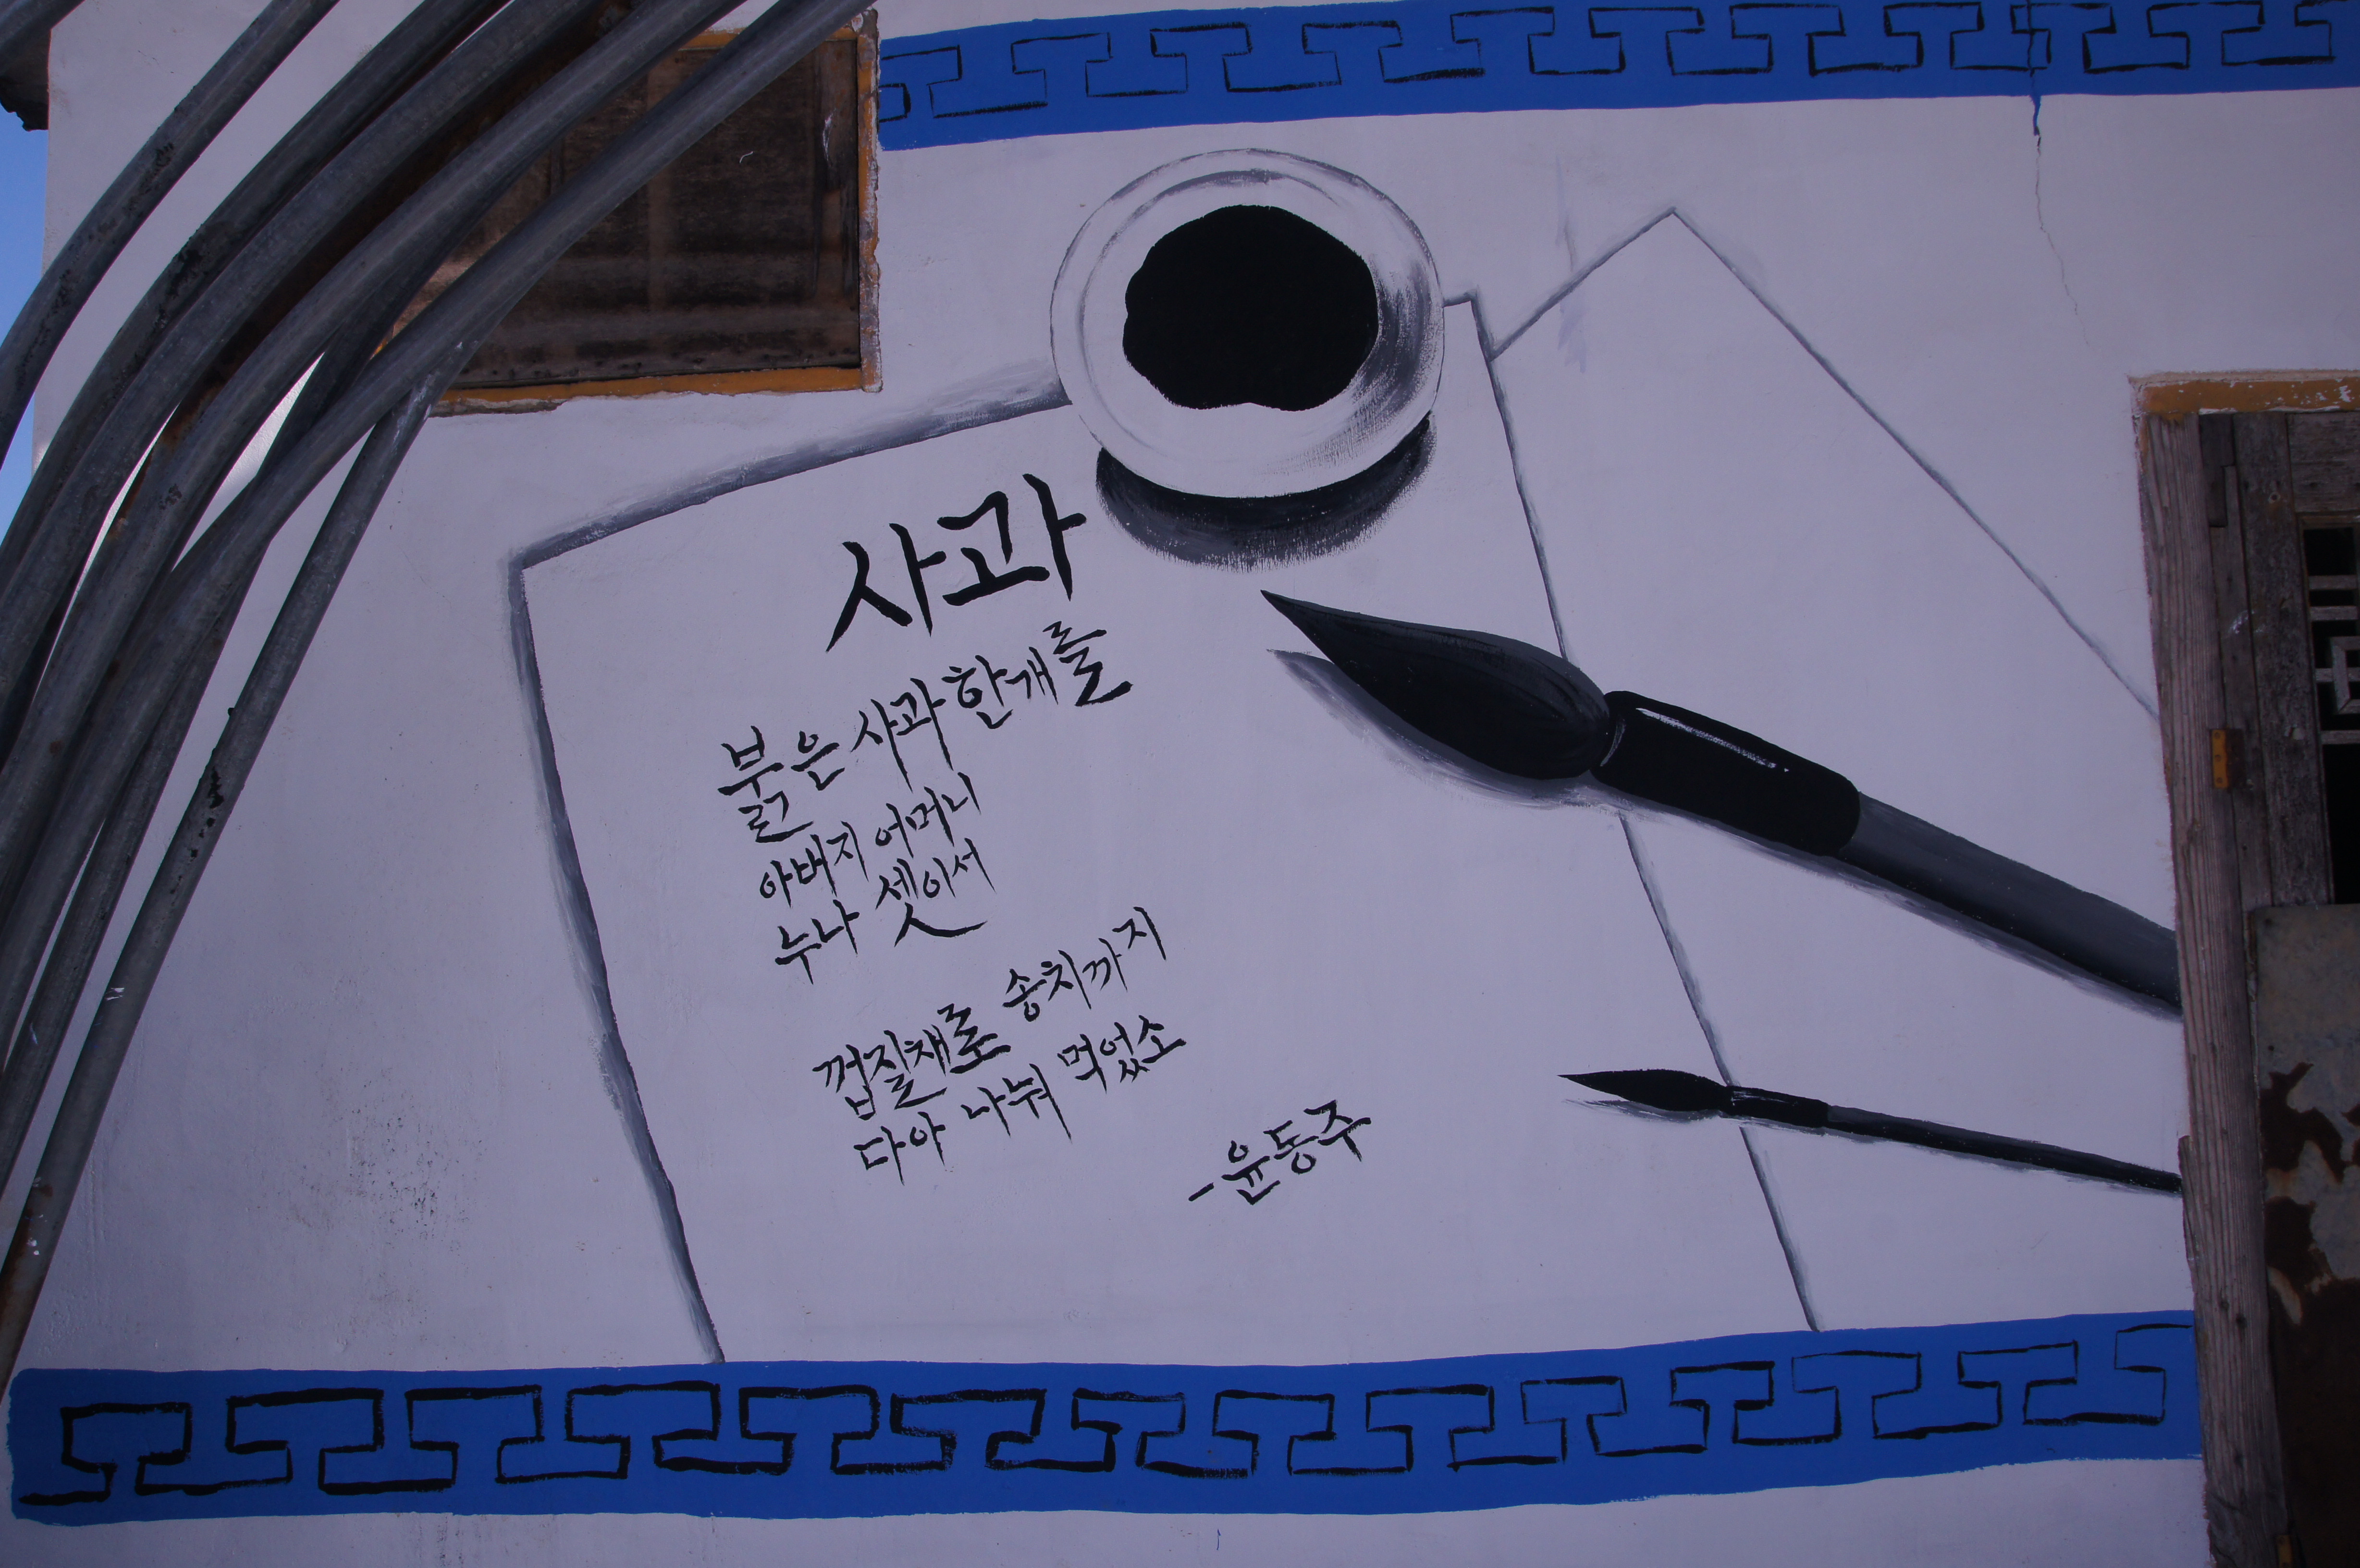 사과
붉은 사과 한개를
아버지 어머니
누나 셋이서
껍질채로 송치까지
다아 나눠 먹었소
-윤동주